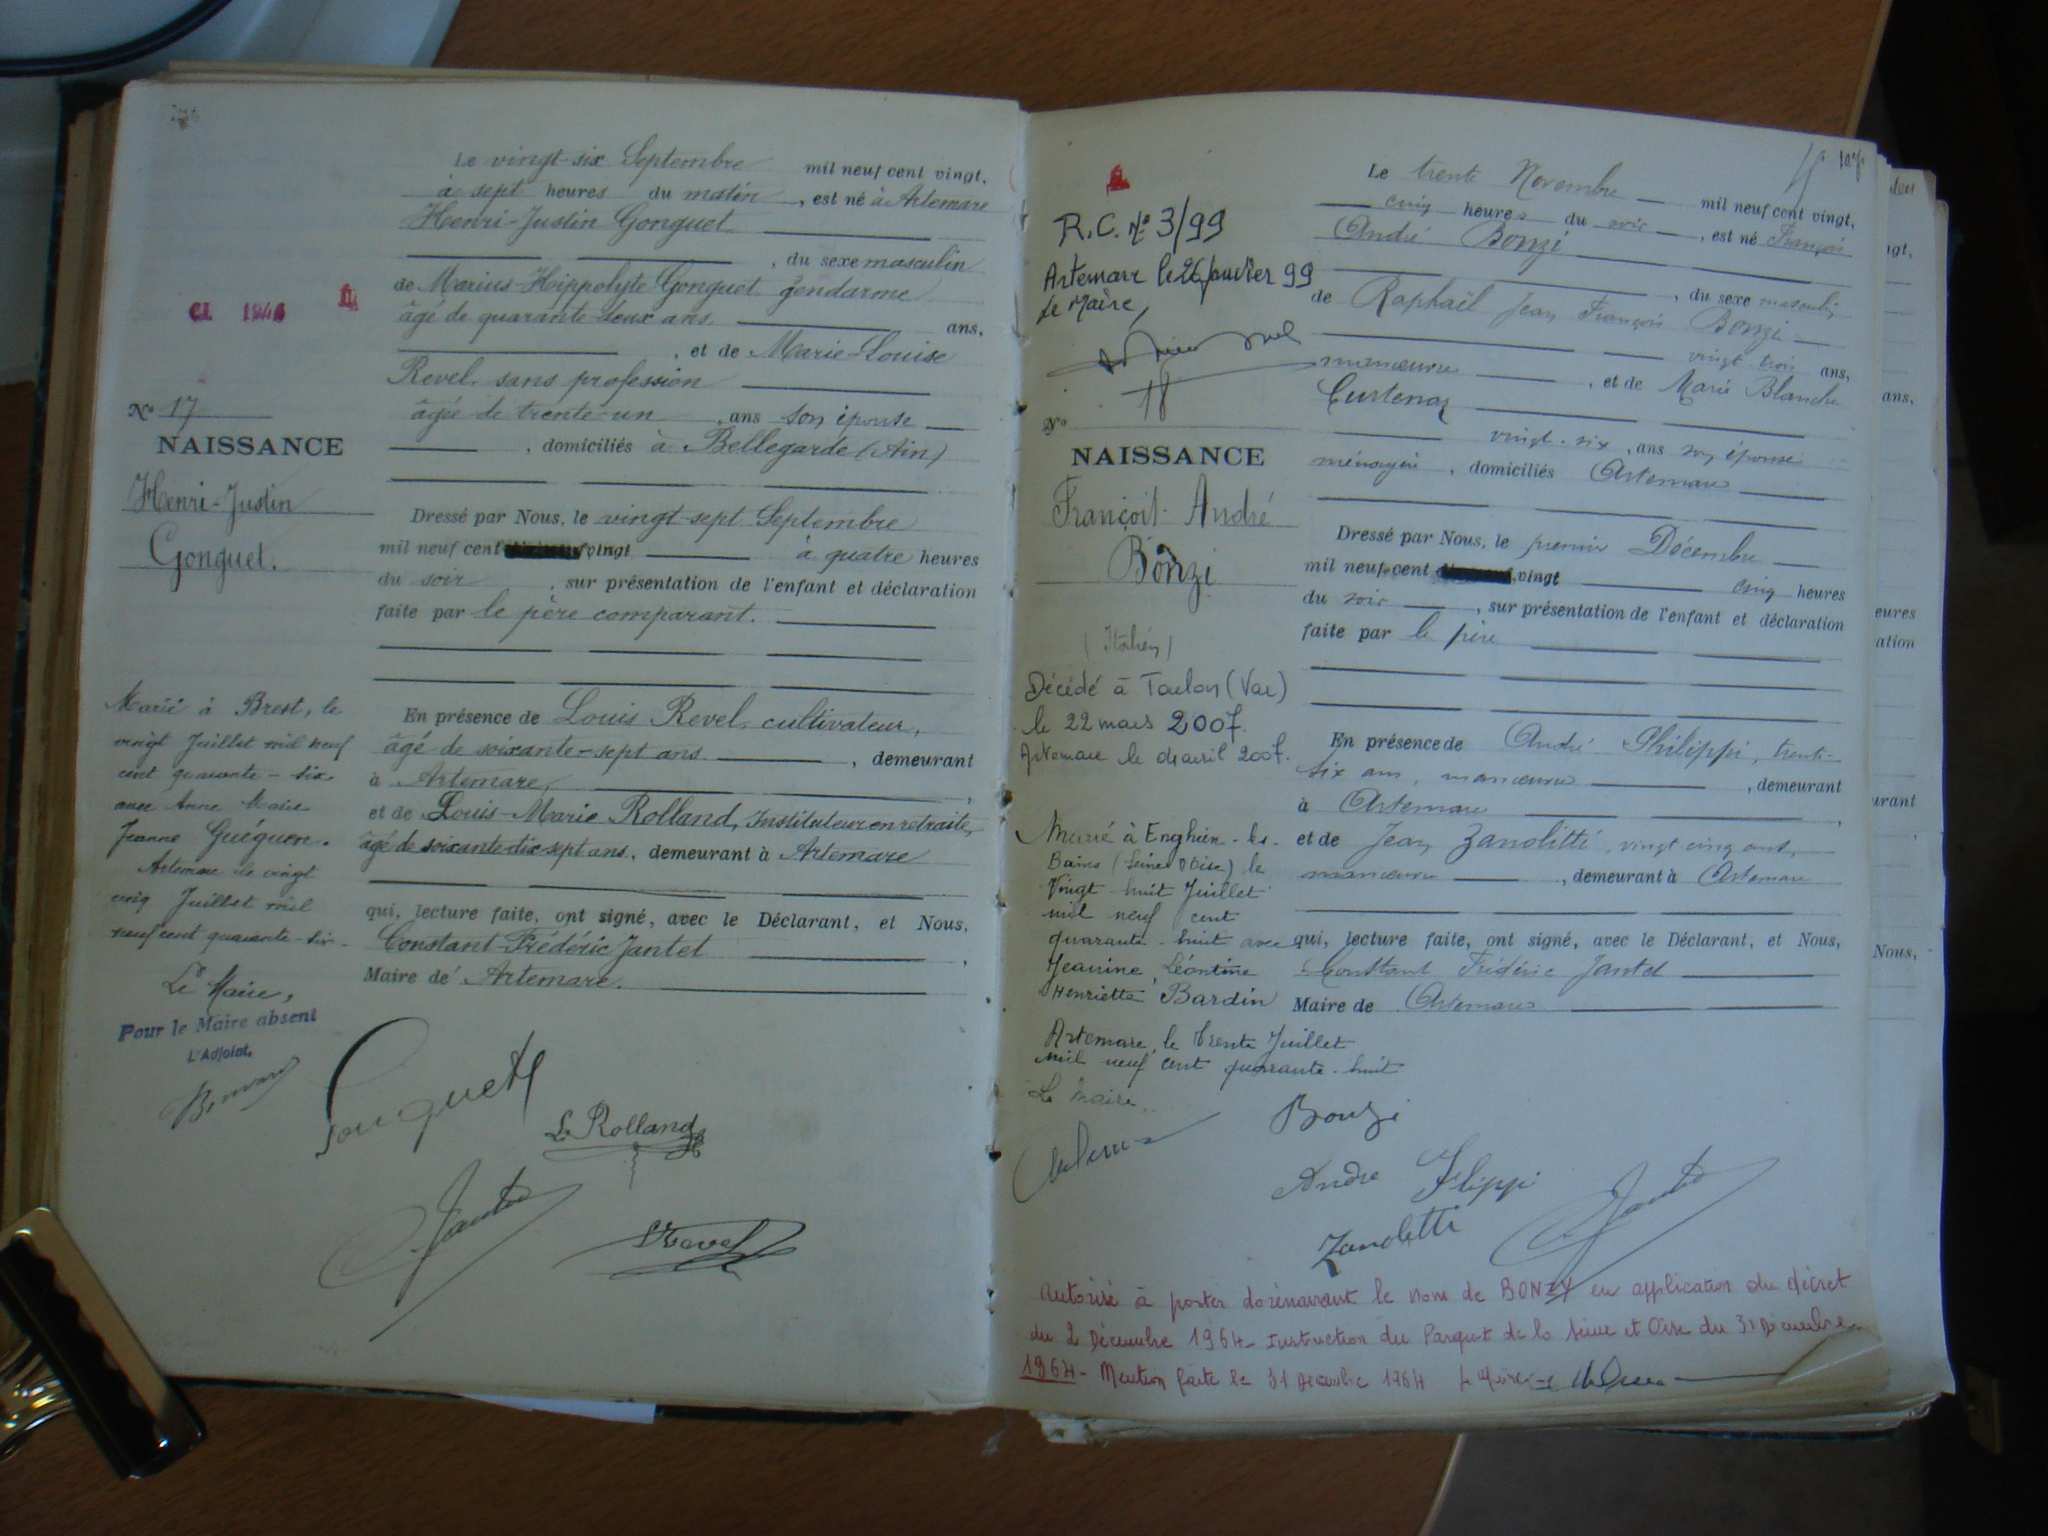 Le vingt-six Septembre mil neuf cent vingt,
à sept heures du matin, est né à Artemare
Henri-Justin Gonguet
, du sexe masculin
de Marius-Hippolyte Gonguet gendarme
âgé de quarante-deux ans ans,
, et de Marie-Louise
Revel, sans profession
âgée de trente-un, ans son épouse
, domiciliés à Bellegarde (Ain)
CL 1940
No 17
NAISSANCE
Henri-Justin
Gonguet.
Dressé par Nous, le vingt-sept Septembre
mil neuf cent vingt à quatre heures
du soir, sur présentation de l'enfant et déclaration
faite par le père comparant.
En présence de Louis Revel, cultivateur,
âgé de soixante-sept ans, demeurant
à Artemare,
et de Louis-Marie Rolland, Instituteur en retraite,
âgé de soixante-dix-sept ans, demeurant à Artemare
qui, lecture faite, ont signé, avec le Déclarant, et Nous,
Constant-Frédéric Jantet,
Maire de Artemare.
Marié à Brest, le
vingt Juillet mil neuf
cent quarante-six
avec Anne Marie
Jeanne Guéguen.
Artemare le vingt
cinq Juillet mil
neuf cent quarante-six.
Le Maire,
Pour le Maire absent
L'Adjoint,
Gonguet
L. Rolland
Jantet
Revel
Le trente Novembre mil neuf cent vingt,
cinq heures du soir, est né François
André Bonzi
, du sexe masculin
de Raphaël Jean François Bonzi
vingt trois ans,
manœuvre, et de Marie Blanche
vingt-six, ans son épouse
ménagère, domiciliés Artemare
R.C. No 3/99
Artemare le 26 janvier 99
Le Maire,
18
No
NAISSANCE
François André
Bonzi
(Italien)
Dressé par Nous, le premier Décembre
mil neuf cent vingt cinq heures
du soir, sur présentation de l'enfant et déclaration
faite par le père
En présence de André Philippi, trente-
six ans, manœuvre, demeurant
à Artemare,
et de Jean Zanolitti, vingt cinq ans,
manœuvre, demeurant à Artemare
qui, lecture faite, ont signé, avec le Déclarant, et Nous,
Constant Frédéric Jantet
Maire de Artemare
Décédé à Toulon (Var)
le 22 mars 2007.
Artemare le avril 2007.
Marié à Enghien-les-
Bains (Seine et Oise) le
Vingt-huit Juillet
mil neuf cent
quarante-huit avec
Jeanine, Léontine
Henriette Bardin
Artemare, le trente Juillet
mil neuf cent quarante-huit
Le Maire
Bonzi
Andre Filippi
Zanoletti
Jantet
Autorisé à porter dorénavant le nom de BONZY en application du décret
du 2 Décembre 1964 - Instruction du Parquet de la Seine et Oise du 31 Décembre
1964 - Mention faite le 31 Décembre 1964 Le Maire